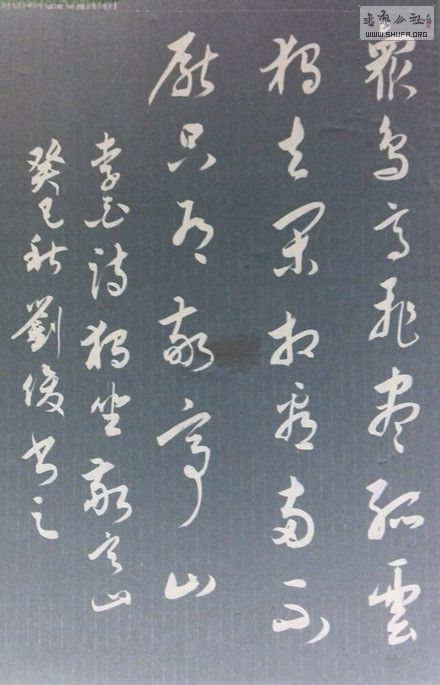 眾鳥高飛盡孤雲
獨去閑相看兩不
厭只有敬亭山
李白詩獨坐敬亭山
癸巳秋劉俊書之
書藝公社
WWW.SHUFA.ORG